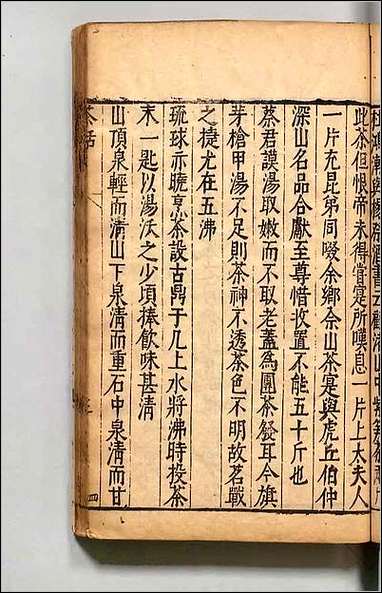 杜鴻漸與楊祭酒書云顧渚山中紫筍茶兩片
此茶但恨帝未得嘗寔所嘆息一片上太夫人
一片充昆弟同啜余鄉佘山茶寔與虎丘伯仲
深山名品合獻至尊惜收置不能五十斤也
蔡君謨湯取嫩而不取老蓋為團茶發耳今旗
芽槍甲湯不足則茶神不透茶色不明故茗戰
之捷尤在五沸
琉球亦曉烹茶設古鼎于几上水將沸時投茶
末一匙以湯沃之少頃捧飲味甚清
山頂泉輕而清山下泉清而重石中泉清而甘
茶話